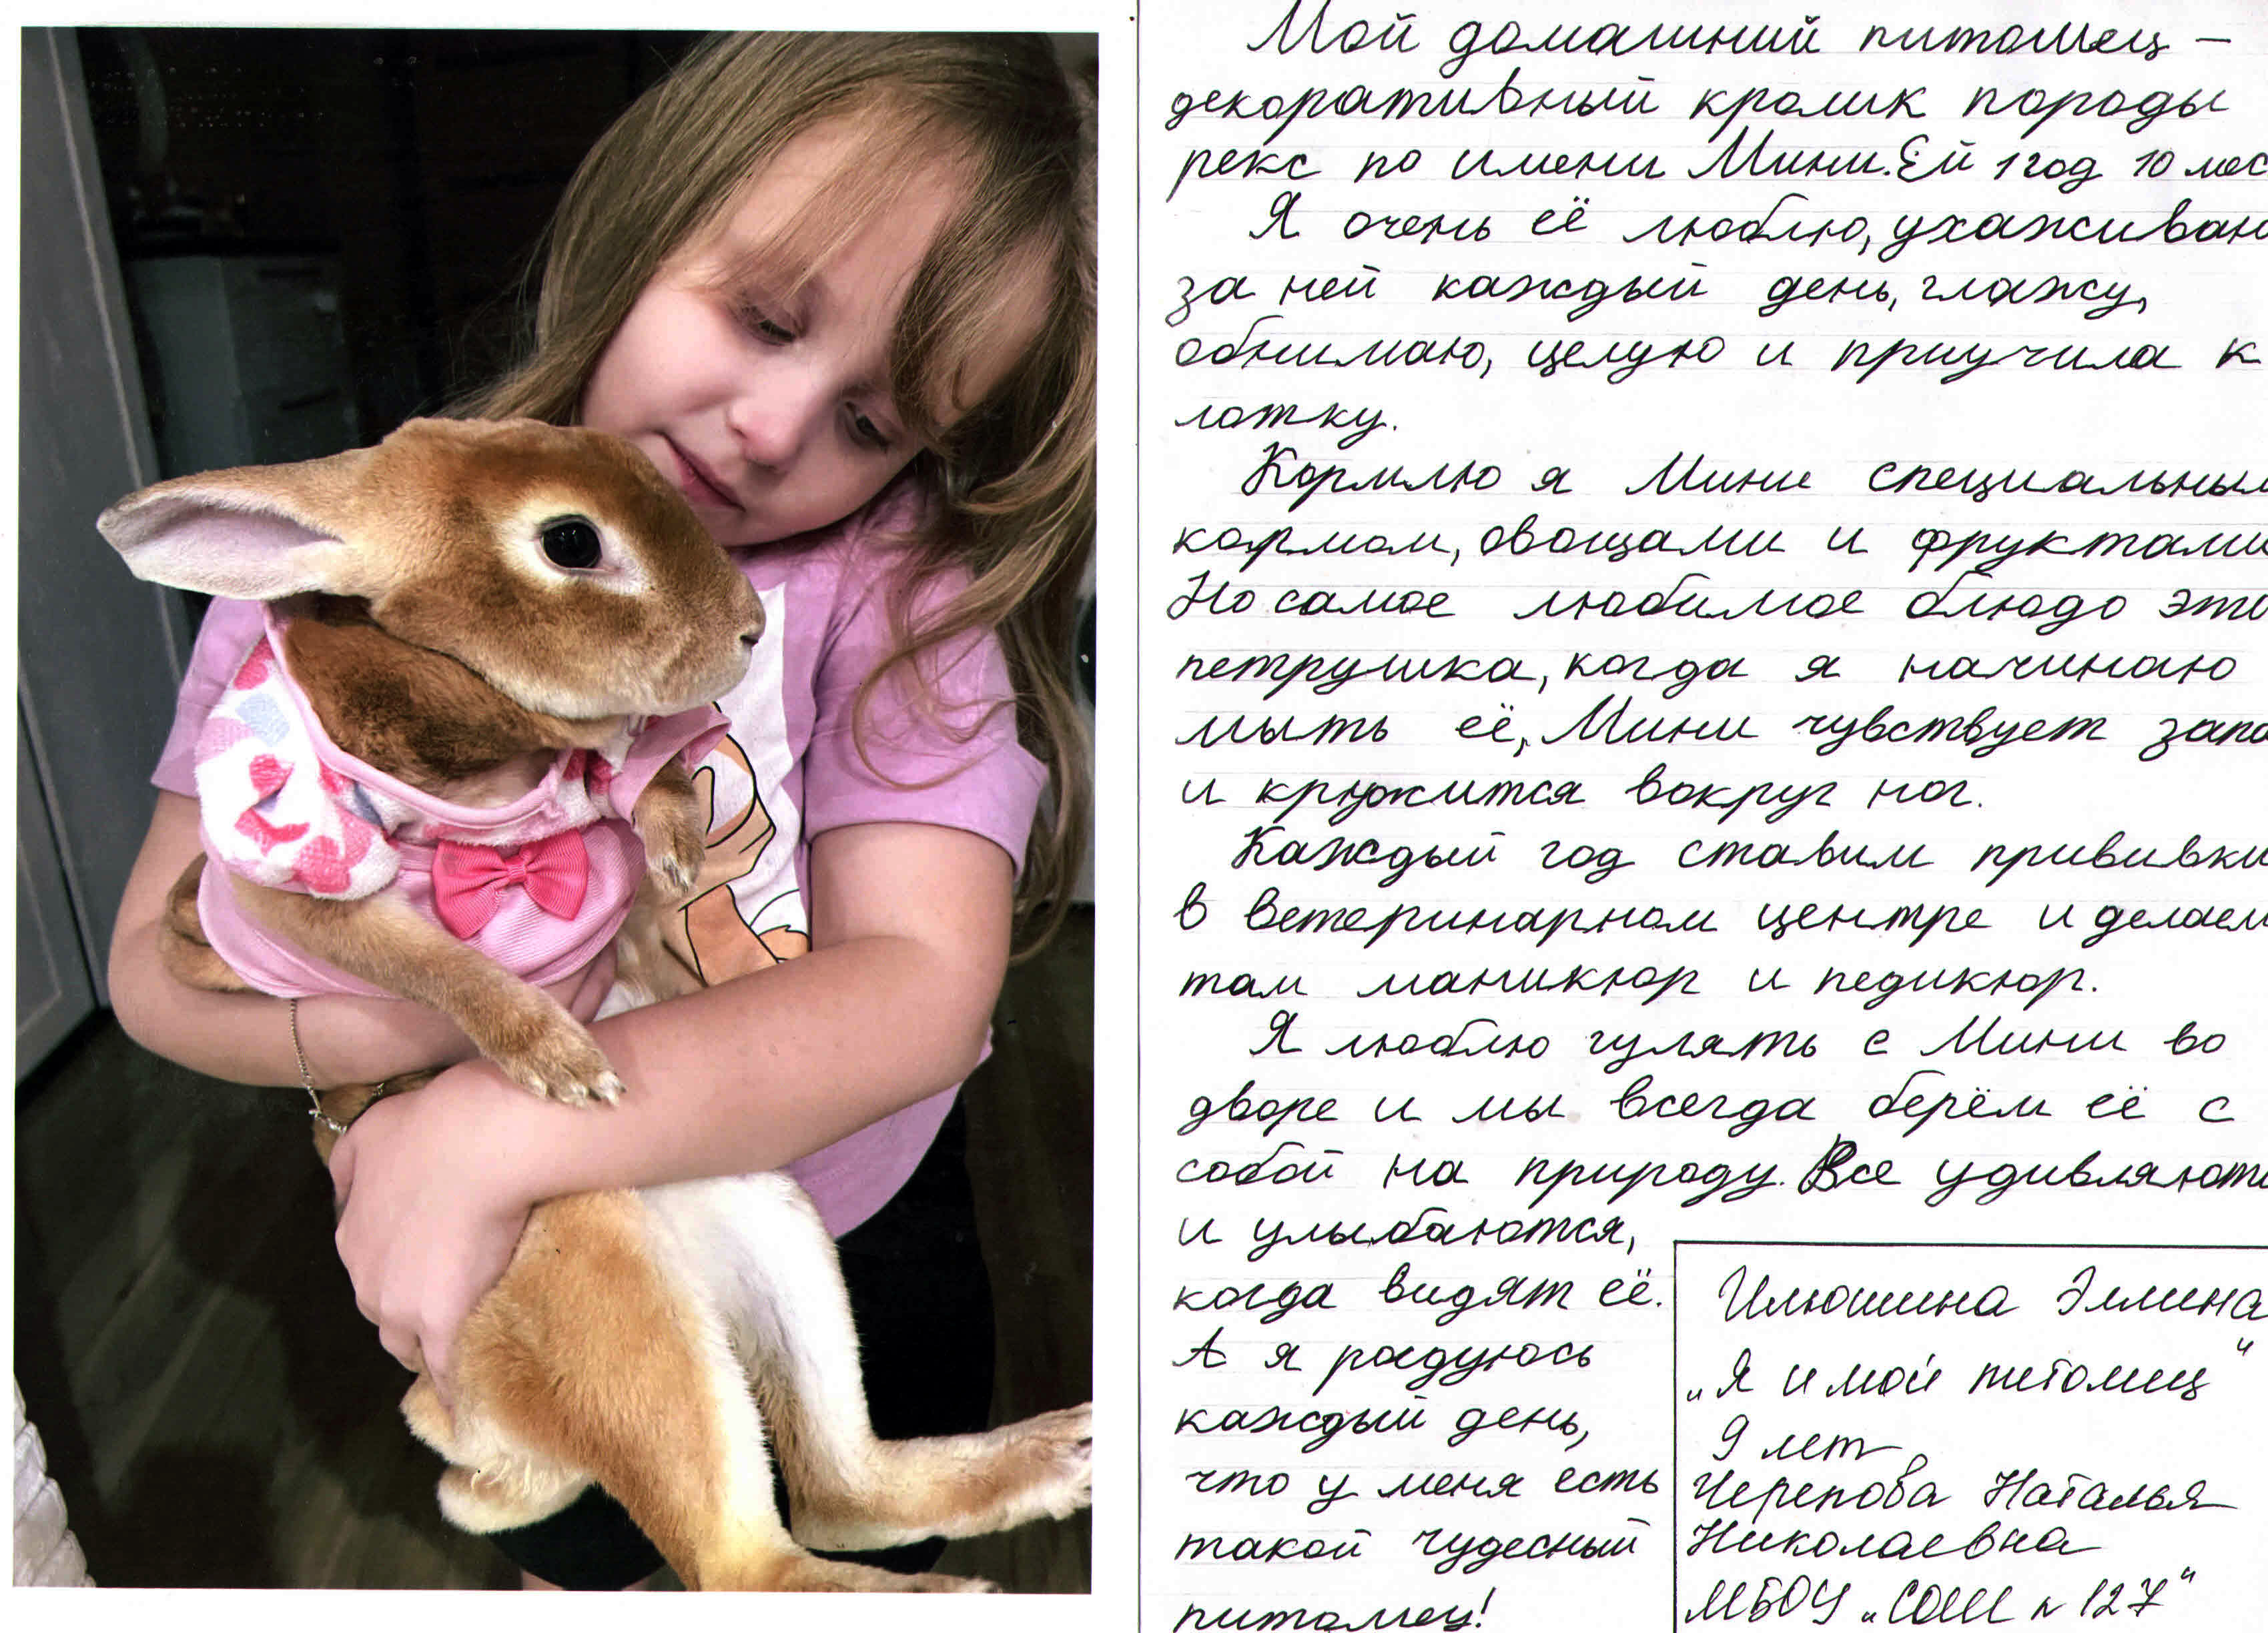 Мой домашний питомец –
декоративный кролик породы
рекс по имени Мини. Ей 1 год 10 мес
Я очень её люблю, ухаживаю
за ней каждый день, глажу,
обнимаю, целую и приучила к
лотку.
Кормлю я Мини специальным
кормом, овощами и фруктами
Но самое любимое блюдо это
петрушка, когда я начинаю
мыть её, Мини чувствует запа
и кружится вокруг ног.
Каждый год ставим прививки
в ветеринарном центре и делаем
там маникюр и педикюр.
Я люблю гулять с Мини во
дворе и мы всегда берём её с
собой на природу. Все удивляютс
и улыбаются,
когда видят её.
А я радуюсь
каждый день,
что у меня есть
такой чудесный
питомец!
Илюшина Эллина
„Я и мой питомец"
9 лет
Черепова Наталья
Николаевна
МБОУ „СОШ № 127"